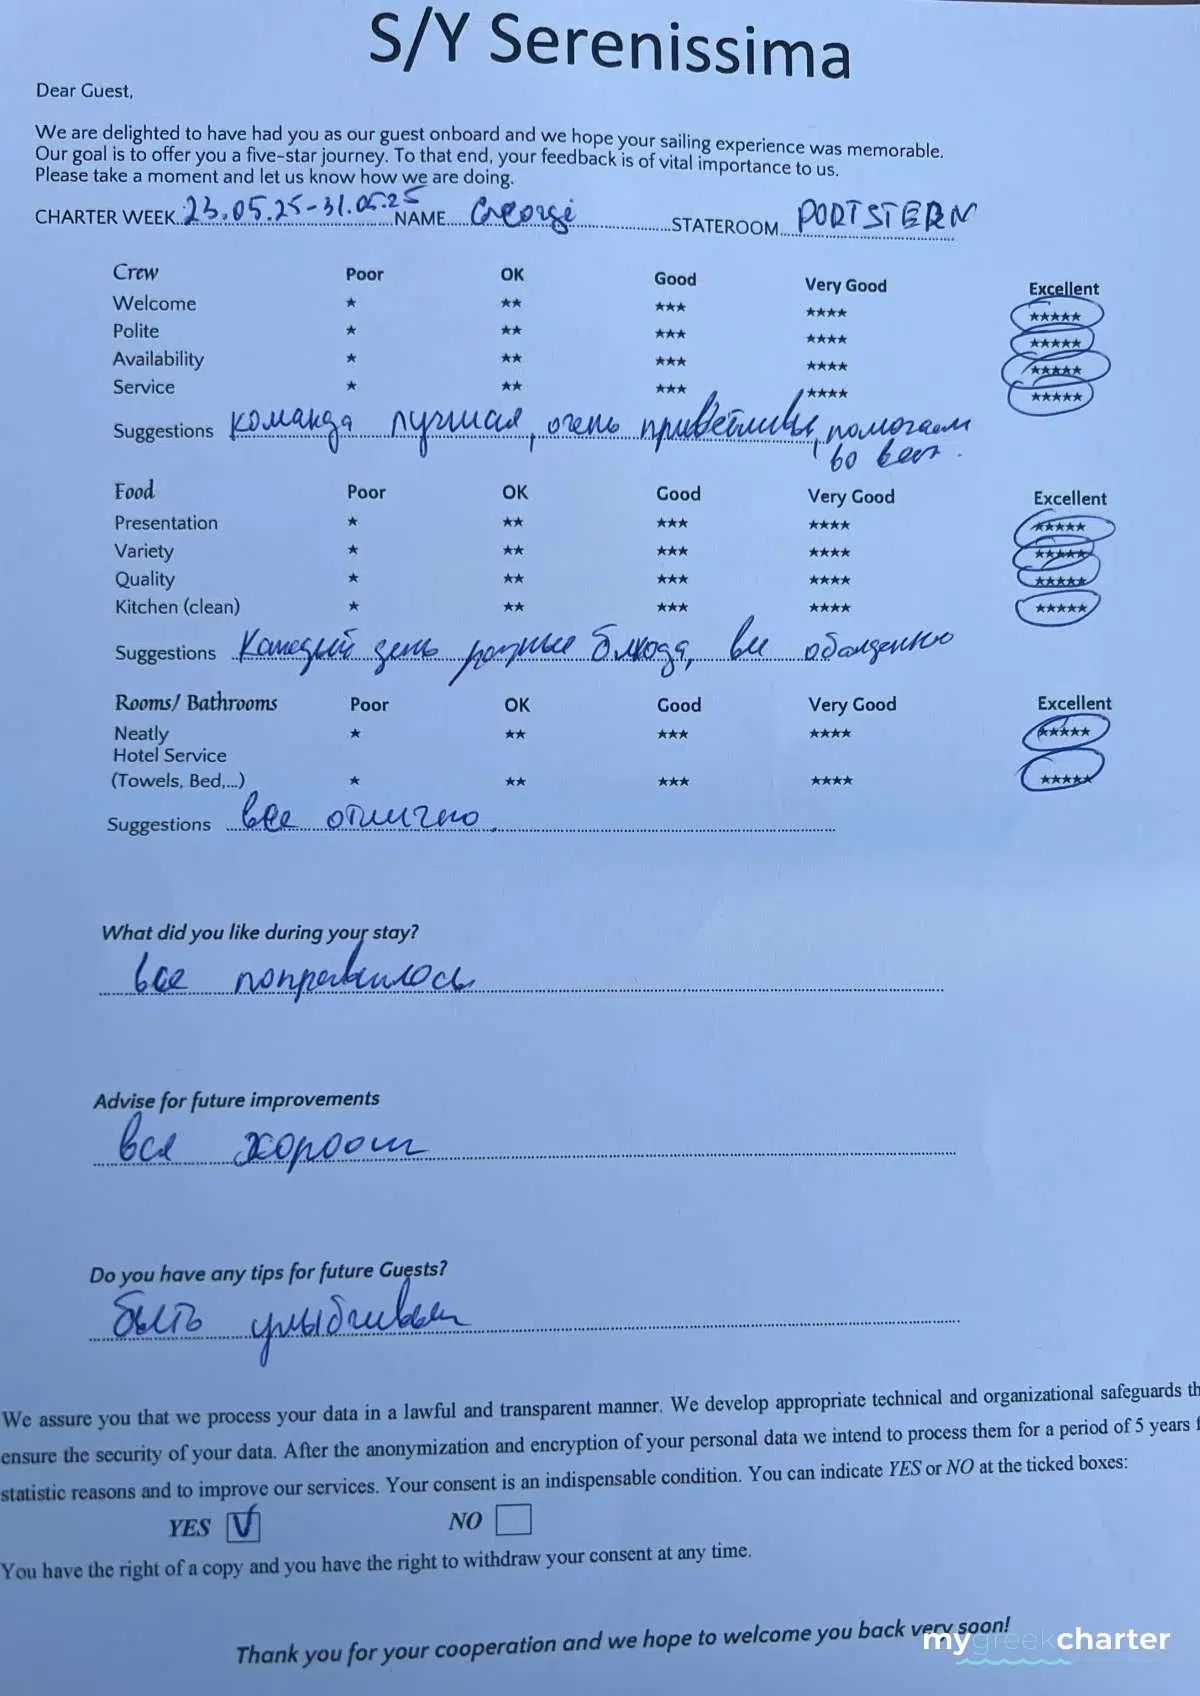 S/Y Serenissima
Dear Guest,
We are delighted to have had you as our guest onboard and we hope your sailing experience was memorable.
Our goal is to offer you a five-star journey. To that end, your feedback is of vital importance to us.
Please take a moment and let us know how we are doing.
CHARTER WEEK 23.05.25-31.05.25 NAME Georgi STATEROOM PORTSTERN
Crew Poor OK Good Very Good Excellent
Welcome ★ ★★ ★★★ ★★★★ ★★★★★
Polite ★ ★★ ★★★ ★★★★ ★★★★★
Availability ★ ★★ ★★★ ★★★★ ★★★★★
Service ★ ★★ ★★★ ★★★★ ★★★★★
Suggestions команда лучшая, очень приветливы, помогают
во всем.
Food Poor OK Good Very Good Excellent
Presentation ★ ★★ ★★★ ★★★★ ★★★★★
Variety ★ ★★ ★★★ ★★★★ ★★★★★
Quality ★ ★★ ★★★ ★★★★ ★★★★★
Kitchen (clean) ★ ★★ ★★★ ★★★★ ★★★★★
Suggestions Каждый день разные блюда, все обалденно
Rooms/ Bathrooms Poor OK Good Very Good Excellent
Neatly ★ ★★ ★★★ ★★★★ ★★★★★
Hotel Service
(Towels, Bed,...) ★ ★★ ★★★ ★★★★ ★★★★★
Suggestions все отлично.
What did you like during your stay?
все понравилось
Advise for future improvements
все хорошо
Do you have any tips for future Guests?
быть
We assure you that we process your data in a lawful and transparent manner. We develop appropriate technical and organizational safeguards th
ensure the security of your data. After the anonymization and encryption of your personal data we intend to process them for a period of 5 years f
statistic reasons and to improve our services. Your consent is an indispensable condition. You can indicate YES or NO at the ticked boxes:
YES V NO
You have the right of a copy and you have the right to withdraw your consent at any time.
Thank you for your cooperation and we hope to welcome you back very soon!
mygreekcharter